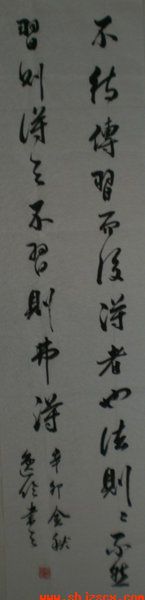 不待傳習而後得者也法則〻不然
習則得之不習則弗得
辛卯金秋
www.shjzscx.com